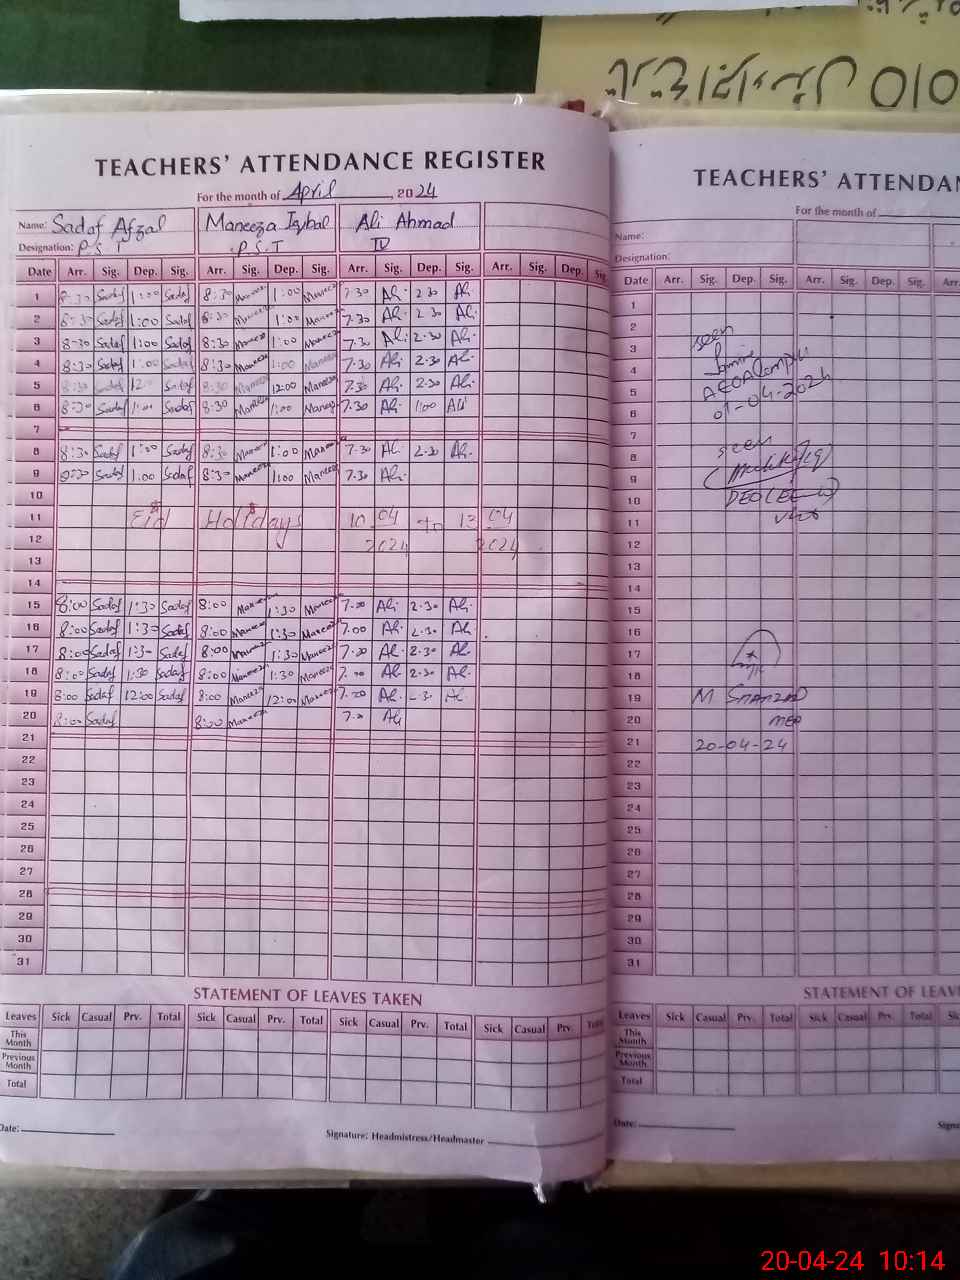 TEACHERS' ATTENDANCE REGISTER
For the month of April, 2024
Name: Sadaf Afzal Maneeza Iqbal Ali Ahmad
Designation: P.S.T P.S.T
Date Arr. Sig. Dep. Sig. Arr. Sig. Dep. Sig. Arr. Sig. Dep. Sig. Arr. Sig. Dep. Sig.
1 8:30 Sadaf 1:00 Sadaf 8:30 Maneeza 1:00 Maneeza 7.30 Ali 2.30 Ali
2 8:30 Sadaf 1:00 Sadaf 8:30 Maneeza 1:00 Maneeza 7.30 Ali 2.30 Ali
3 8-30 Sadaf 1:00 Sadaf 8:30 Maneeza 1:00 Maneeza 7.30 Ali 2.30 Ali
4 8:30 Sadaf 1:00 Sadaf 8:30 Maneeza 1:00 Maneeza 7.30 Ali 2.30 Ali
5 8:30 Sadaf 12:00 Sadaf 8:30 Maneeza 12:00 Maneeza 7.30 Ali 2.30 Ali
6 8:30 Sadaf 1:00 Sadaf 8:30 Maneeza 1:00 Maneeza 7.30 Ali 1:00 Ali
7
8 8:30 Sadaf 1:00 Sadaf 8:30 Maneeza 1:00 Maneeza 7.30 Ali 2.30 Ali
9 8:30 Sadaf 1:00 Sadaf 8:30 Maneeza 1:00 Maneeza 7.30 Ali
10
11 Eid Holidays 10 04 to 13 04
12 2024 2024
13
14
15 8:00 Sadaf 1:30 Sadaf 8:00 Maneeza 1:30 Maneeza 7.00 Ali 2.30 Ali
16 8:00 Sadaf 1:30 Sadaf 8:00 Maneeza 1:30 Maneeza 7.00 Ali 2.30 Ali
17 8:00 Sadaf 1:30 Sadaf 8:00 Maneeza 1:30 Maneeza 7.30 Ali 2.30 Ali
18 8:00 Sadaf 1:30 Sadaf 8:00 Maneeza 1:30 Maneeza Ali 2.30 Ali
19 8:00 Sadaf 12:00 Sadaf 8:00 Maneeza 12:00 Maneeza Ali Ali
20 8:00 Sadaf 8:00 Maneeza Ali
21
22
23
24
25
26
27
28
29
30
31
STATEMENT OF LEAVES TAKEN
Leaves Sick Casual Prv. Total Sick Casual Prv. Total Sick Casual Prv. Total Sick Casual Prv. Total
This Month
Previous Month
Total
Date:
Signature: Headmistress/Headmaster
TEACHERS' ATTENDAN
For the month of
Name:
Designation:
Date Arr. Sig. Dep. Sig. Arr. Sig. Dep. Sig. Arr.
1
2
3 seen
4
5
6 01-04-2024
7
8 seen
9
10
11
12
13
14
15
16
17
18
19 M Shahzad
20 MEA
21 20-04-24
22
23
24
25
26
27
28
29
30
31
STATEMENT OF LEAV
Leaves Sick Casual Prv. Total Sick Casual Prv. Total Sick
This Month
Previous Month
Total
Date:
Signa
20-04-24 10:14